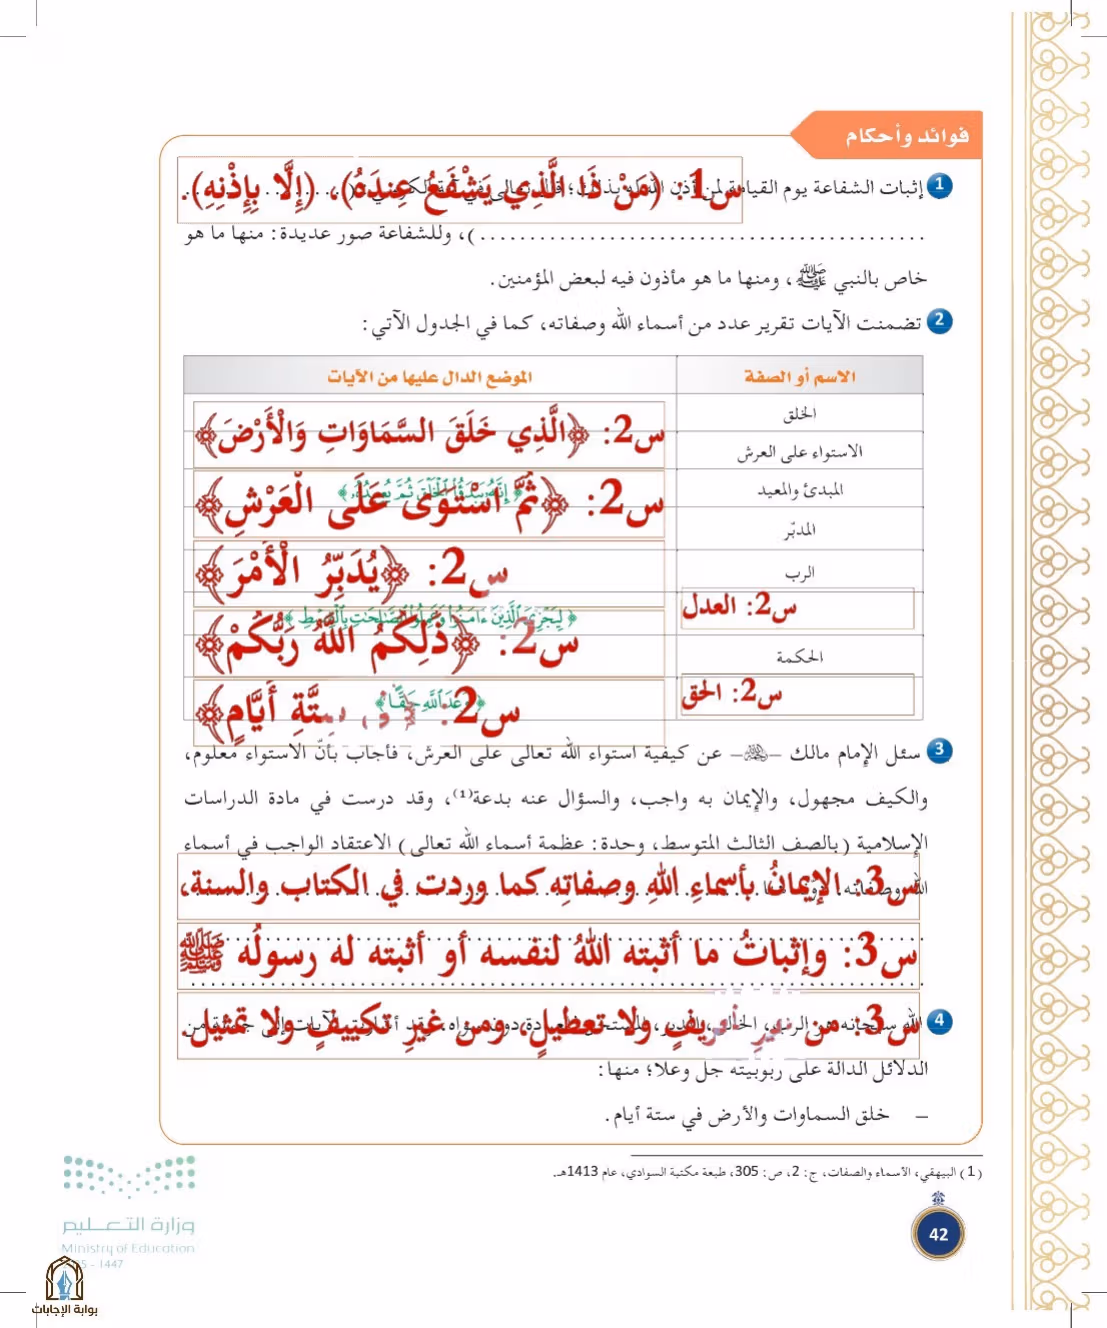 فوائد وأحكام
1 إثبات الشفاعة يوم القيامة لمن أذن الله له بذلك؛
س1: (مَنْ ذَا الَّذِي يَشْفَعُ عِندَهُ)، (إِلَّا بِإِذْنِهِ).
)، وللشفاعة صور عديدة: منها ما هو
خاص بالنبي ﷺ، ومنها ما هو مأذون فيه لبعض المؤمنين.
2 تضمنت الآيات تقرير عدد من أسماء الله وصفاته، كما في الجدول الآتي:
الاسم أو الصفة الموضع الدال عليها من الآيات
الخلق
س2: ﴿الَّذِي خَلَقَ السَّمَاوَاتِ وَالْأَرْضَ﴾
الاستواء على العرش
المبدئ والمعيد
﴿إِنَّهُ يَبْدَؤُا الْخَلْقَ ثُمَّ يُعِيدُهُ﴾
س2: ﴿ثُمَّ اسْتَوَى عَلَى الْعَرْشِ﴾
المدبّر
الرب
س2: ﴿يُدَبِّرُ الْأَمْرَ﴾
س2: العدل
﴿لِيَجْزِيَ الَّذِينَ ءَامَنُوا وَعَمِلُوا الصَّالِحَاتِ بِالْقِسْطِ﴾
س2: ﴿ذَلِكُمُ اللَّهُ رَبُّكُمْ﴾
الحكمة
س2: الحق
﴿وَعْدَ اللَّهِ حَقًّا﴾
س2: سِتَّةِ أَيَّامٍ﴾
3 سئل الإمام مالك – رحمه الله – عن كيفية استواء الله تعالى على العرش، فأجاب بأنّ الاستواء معلوم،
والكيف مجهول، والإيمان به واجب، والسؤال عنه بدعة(1)، وقد درست في مادة الدراسات
الإسلامية (بالصف الثالث المتوسط، وحدة: عظمة أسماء الله تعالى) الاعتقاد الواجب في أسماء
س3: الإيمانُ بأسماءِ اللهِ وصفاتِه كما وردت في الكتاب والسنة،
س3: وإثباتُ ما أثبته اللهُ لنفسه أو أثبته له رسولُه ﷺ
س3: من غيرِ تحريفٍ ولا تعطيلٍ، ومن غيرِ تكييفٍ ولا تمثيل.
4 الله سبحانه هو الرب،
الدلائل الدالة على ربوبيته جل وعلا؛ منها:
– خلق السماوات والأرض في ستة أيام.
(1) البيهقي، الأسماء والصفات، ج: 2، ص: 305، طبعة مكتبة السوادي، عام 1413هـ.
وزارة التعليم
Ministry of Education
5 - 1447
42
بوابة الإجابات